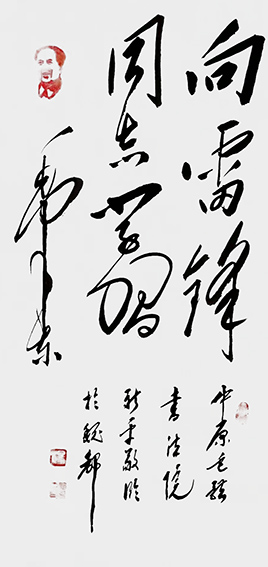 向雷锋
同志学习
毛泽东
中原毛体
书法院
新平敬临
於魏都